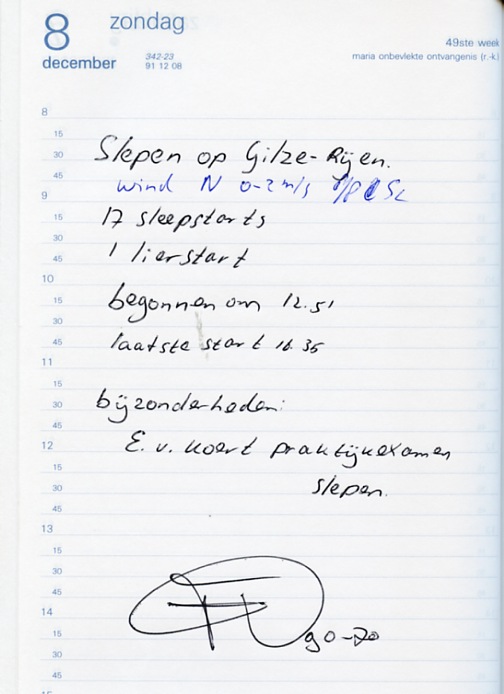 8 zondag
december
342-23
91 12 08
49ste week
maria onbevlekte ontvangenis (r.-k)
8
15
30 Slepen op Gilze-Rijen.
45 wind N 0-2 m/s
9
15 17 sleepstarts
30
45 1 lierstart
10
15 begonnen om 12.51
30
45 laatste start 16.35
11
15
30 bijzonderheden:
45
12 E. v. Koert praktijkexamen
15
30 slepen.
45
13
15
30
45
14
15
30
45